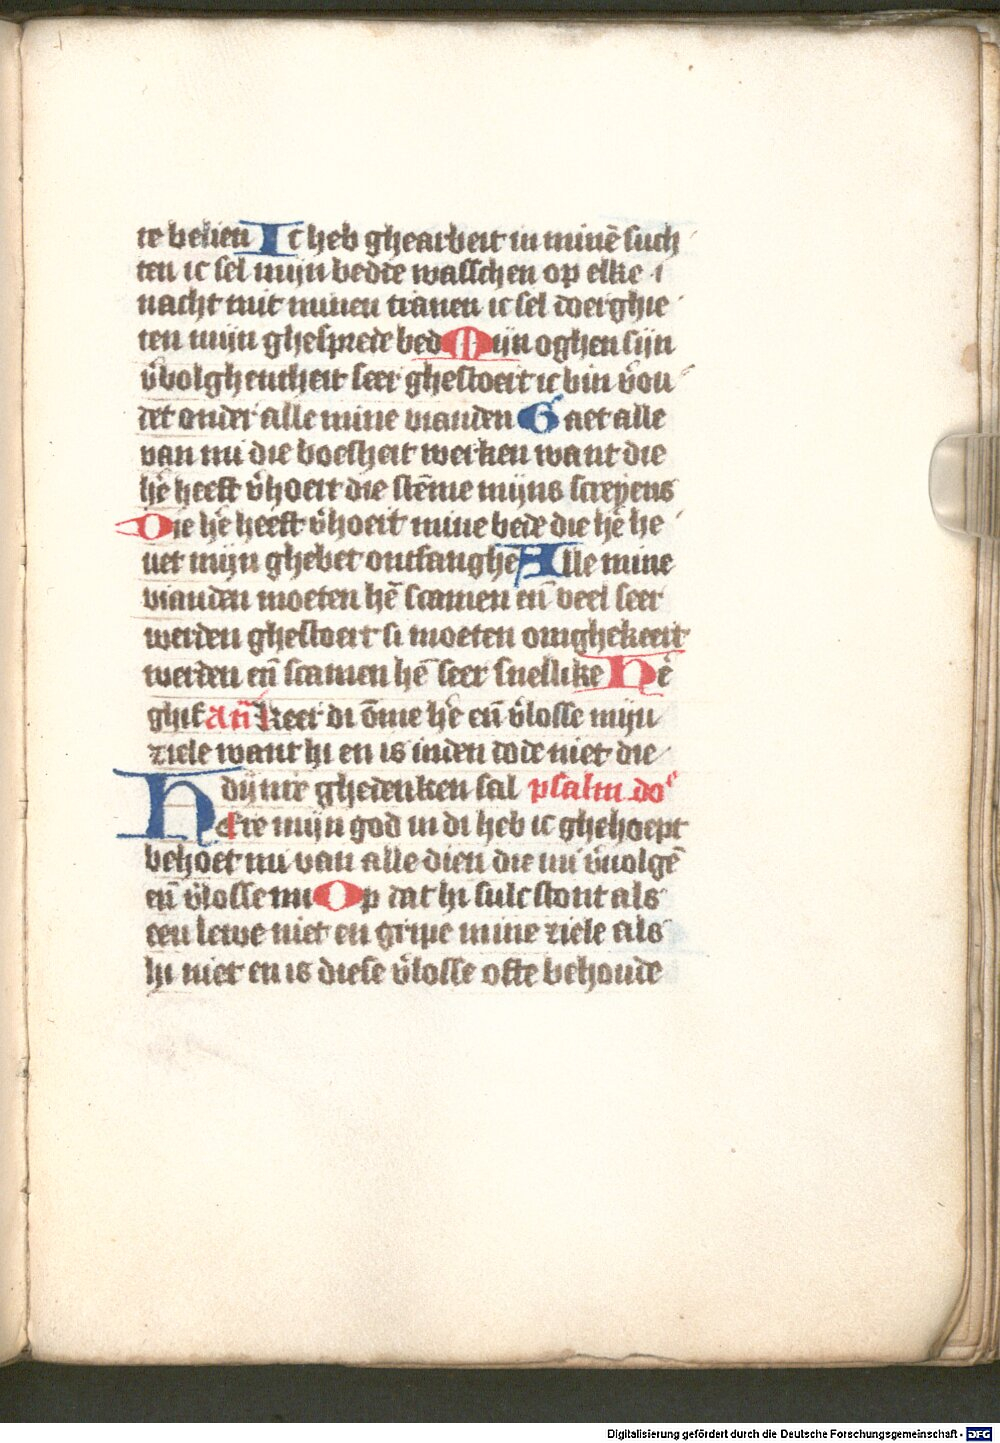 te belien Ic heb ghearbeit in minē such
ten ic sel mijn bedde wasschen op elke
nacht mit minen tranen ic sel doerghie
ten mijn ghesprede bed Mijn oghen sijn
v̄bolghentheit seer ghestoert ic bin v̄ou
det onder alle mine vianden Gaet alle
van mi die boesheit werken want die
hē heeft v̄hoert die stēme mijns screyens
Die hē heeft v̄hoert mine bede die hē he
uet mijn ghebet ontfanghē Alle mine
vianden moeten hē scamen eñ veel seer
werden ghestoert si moeten omghekeert
werden eñ scamen hē seer snellike Hē
ghif añ Keer di ōme hē eñ v̄losse mijn
ziele want hi en is inden dode niet die
dijnre ghedenken sal psalm do⁹
Here mijn god in di heb ic ghehoept
behoet mi van alle dien die mi v̄uolgē
eñ v̄losse mi Op dat hi sulc stont als
een lewe niet en gripe mine ziele als
hi niet en is diese v̄losse ofte behoude
Digitalisierung gefördert durch die Deutsche Forschungsgemeinschaft - DFG